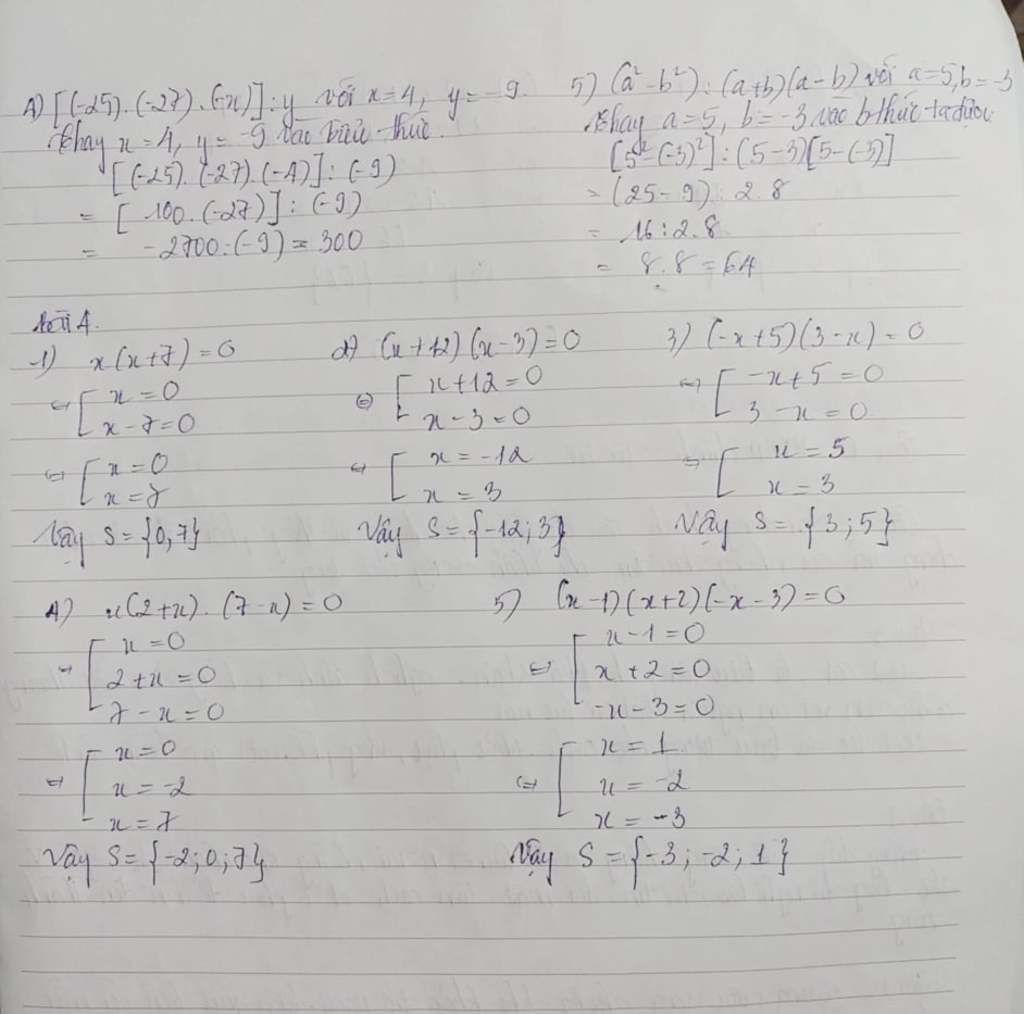 4) [(-25).(-27).(-x)]:y với x=4, y=-9.
Thay x=4, y=-9 vào biểu thức.
[(-25).(-27).(-4)]:(-9)
= [100.(-27)]:(-9)
= -2700:(-9)=300
5) (a²-b²):(a+b)(a-b) với a=5,b=-3
Thay a=5, b=-3 vào b thức ta được
[5²-(-3)²]:(5-3)[5-(-3)]
= (25-9):2.8
= 16:2.8
= 8.8=64
Bài 4.
1) x(x+7)=0
⇔ [ x=0
x-7=0
⇔ [ x=0
x=7
Vậy S={0,7}
2) (x+12)(x-3)=0
⇔ [ x+12=0
x-3=0
⇔ [ x=-12
x=3
Vậy S={-12;3}
3) (-x+5)(3-x)=0
⇔ [ -x+5=0
3-x=0
⇔ [ x=5
x=3
Vậy S={3;5}
4) x(2+x).(7-x)=0
⇔ [ x=0
2+x=0
7-x=0
⇔ [ x=0
x=-2
x=7
Vậy S={-2;0;7}
5) (x-1)(x+2)(-x-3)=0
⇔ [ x-1=0
x+2=0
-x-3=0
⇔ [ x=1
x=-2
x=-3
Vậy S={-3;-2;1}